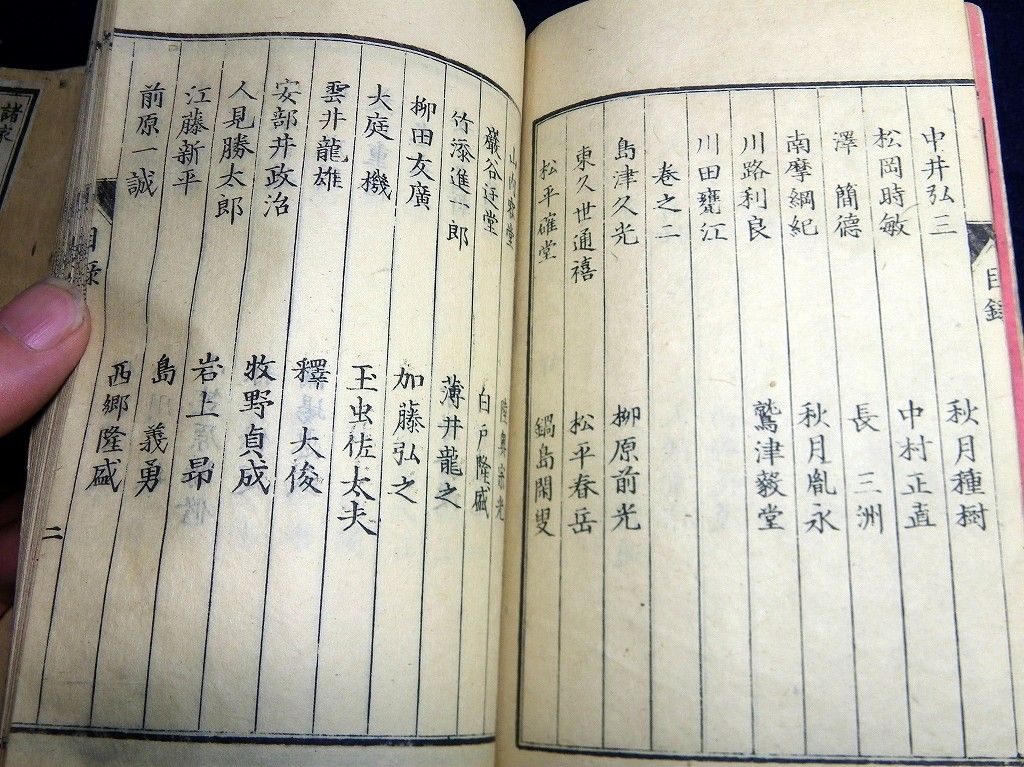 目錄
中井弘三 秋月種樹
松岡時敏 中村正直
澤 簡德 長 三洲
南摩綱紀 秋月胤永
川路利良 鷲津毅堂
川田甕江
卷之二
島津久光 柳原前光
東久世通禧 松平春岳
松平確堂 鍋島閑叟
山内容堂 陸奥宗光
巖谷迂堂 白戸隆盛
竹添進一郎 薄井龍之
柳田友廣 加藤弘之
大庭重機 玉虫佐太夫
雲井龍雄 釋大俊
安部井政治 牧野貞成
人見勝太郎 岩上昴
江藤新平 島義勇
前原一誠 西郷隆盛
目錄 二
諸家